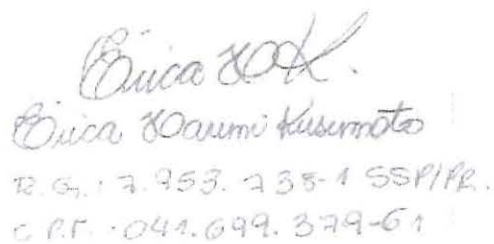 Érica H K.
Érica Harumi Kusumoto
R.G.: 7.953.738-1 SSP/PR.
C.P.F. 041.699.379-61